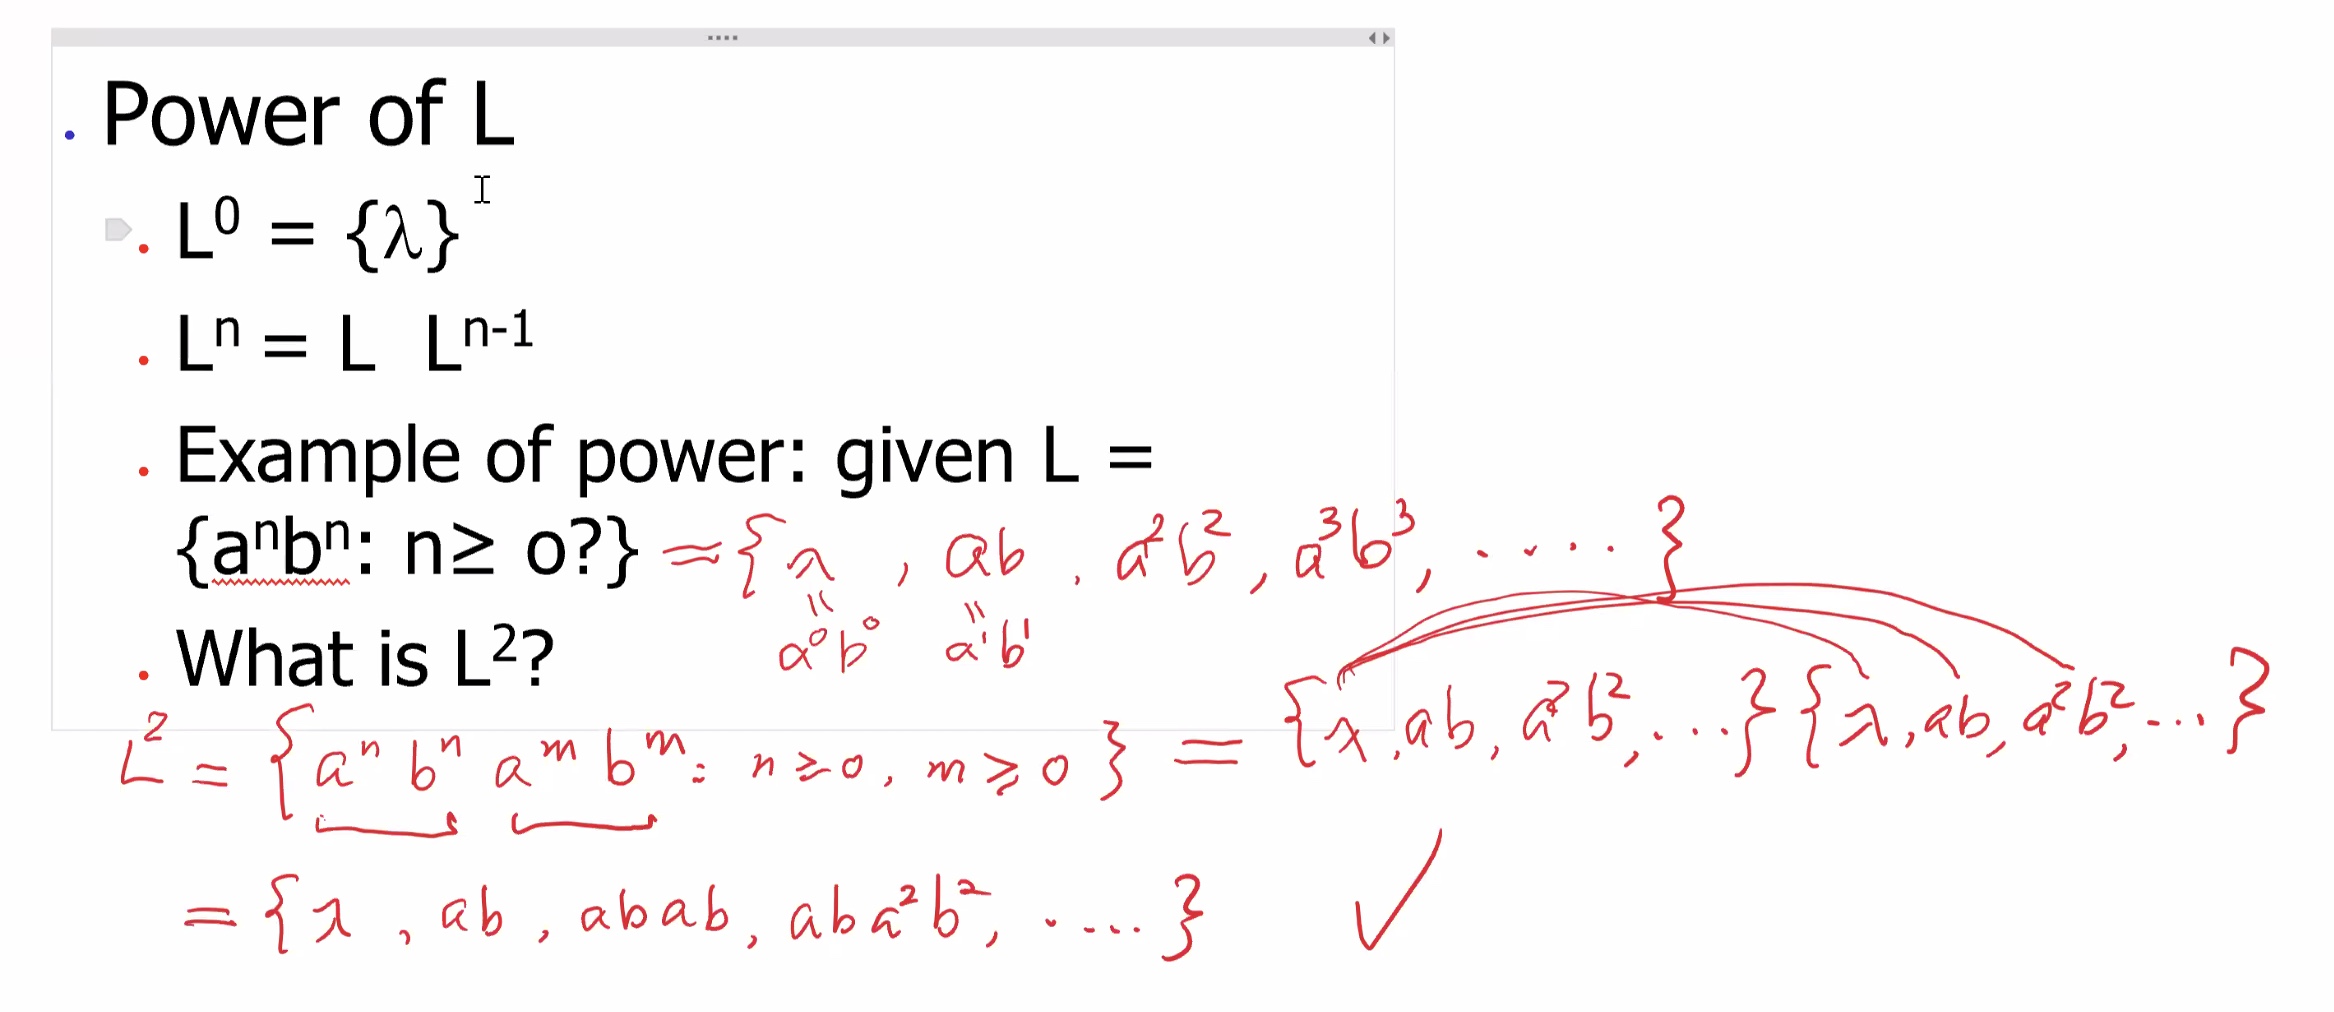 Power of L
L⁰ = {λ}
Lⁿ = L Lⁿ⁻¹
Example of power: given L =
{aⁿbⁿ: n≥ o?} = {λ, ab, a²b², a³b³, .....}
= a⁰b⁰ = a¹b¹
What is L²?
L² = {aⁿbⁿ aᵐbᵐ: n≥0, m≥0} = {λ, ab, a²b², ...}{λ, ab, a²b², ...}
= {λ, ab, abab, aba²b², .....}